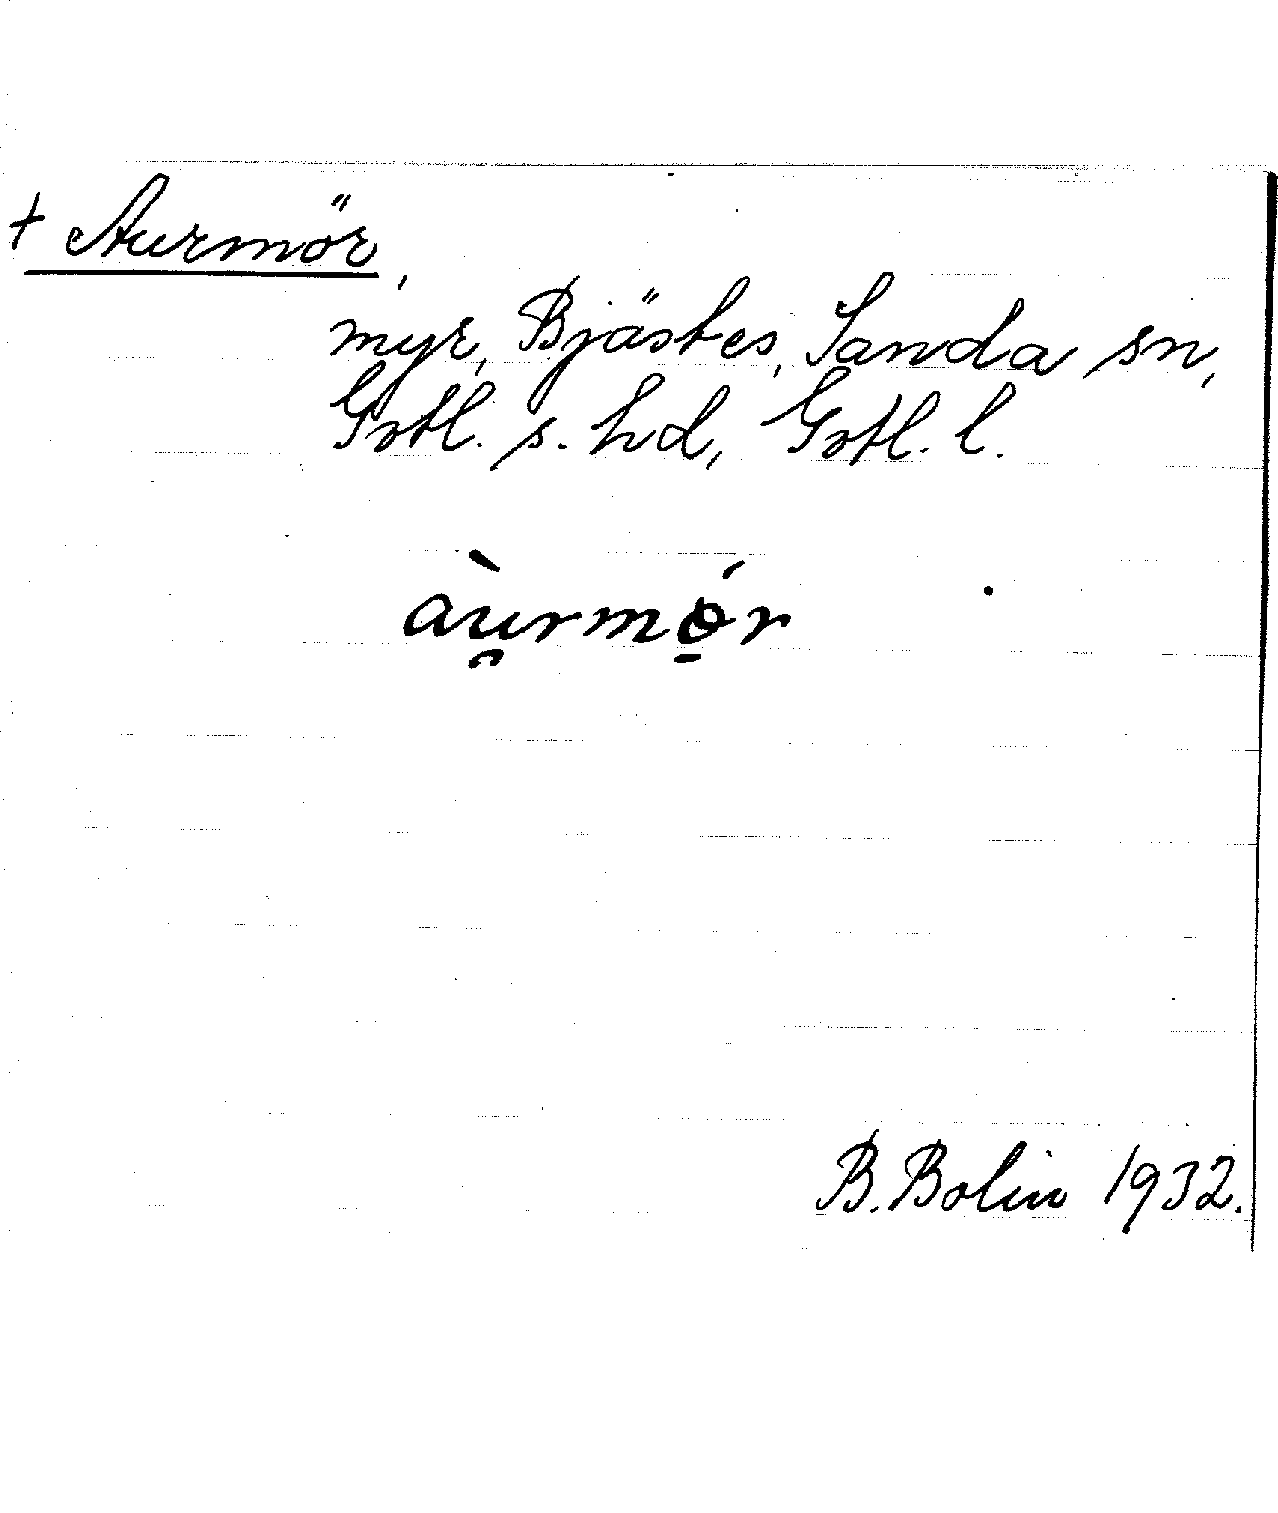 + Aurmör,
myr, Bjästes, Sanda sn,
Gotl. s. hd, Gotl. l.
àu̯rmọ́r
B. Bolin 1932.